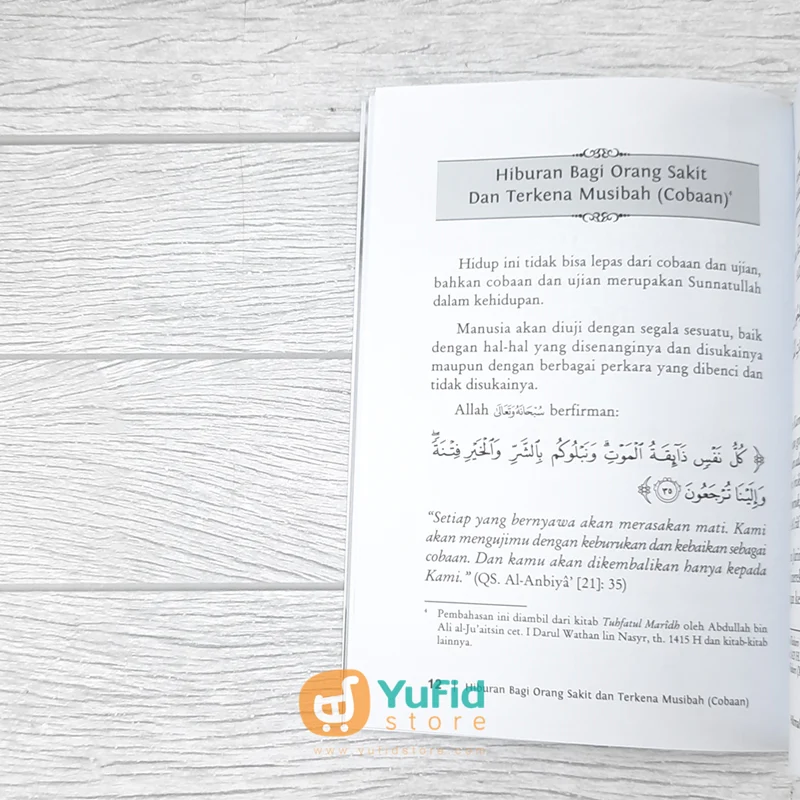 Hiburan Bagi Orang Sakit
Dan Terkena Musibah (Cobaan)⁴
Hidup ini tidak bisa lepas dari cobaan dan ujian,
bahkan cobaan dan ujian merupakan Sunnatullah
dalam kehidupan.
Manusia akan diuji dengan segala sesuatu, baik
dengan hal-hal yang disenanginya dan disukainya
maupun dengan berbagai perkara yang dibenci dan
tidak disukainya.
Allah سُبْحَانَهُ وَتَعَالَى berfirman:
﴿ كُلُّ نَفْسٍ ذَآئِقَةُ ٱلْمَوْتِۗ وَنَبْلُوكُم بِٱلشَّرِّ وَٱلْخَيْرِ فِتْنَةًۖ
وَإِلَيْنَا تُرْجَعُونَ ٣٥ ﴾
“Setiap yang bernyawa akan merasakan mati. Kami
akan mengujimu dengan keburukan dan kebaikan sebagai
cobaan. Dan kamu akan dikembalikan hanya kepada
Kami.” (QS. Al-Anbiyâ’ [21]: 35)
⁴ Pembahasan ini diambil dari kitab Tuhfatul Marîdh oleh Abdullah bin
Ali al-Ju’aitsin cet. I Darul Wathan lin Nasyr, th. 1415 H dan kitab-kitab
lainnya.
12 Hiburan Bagi Orang Sakit dan Terkena Musibah (Cobaan)
YuFid
store
www.yufidstore.com